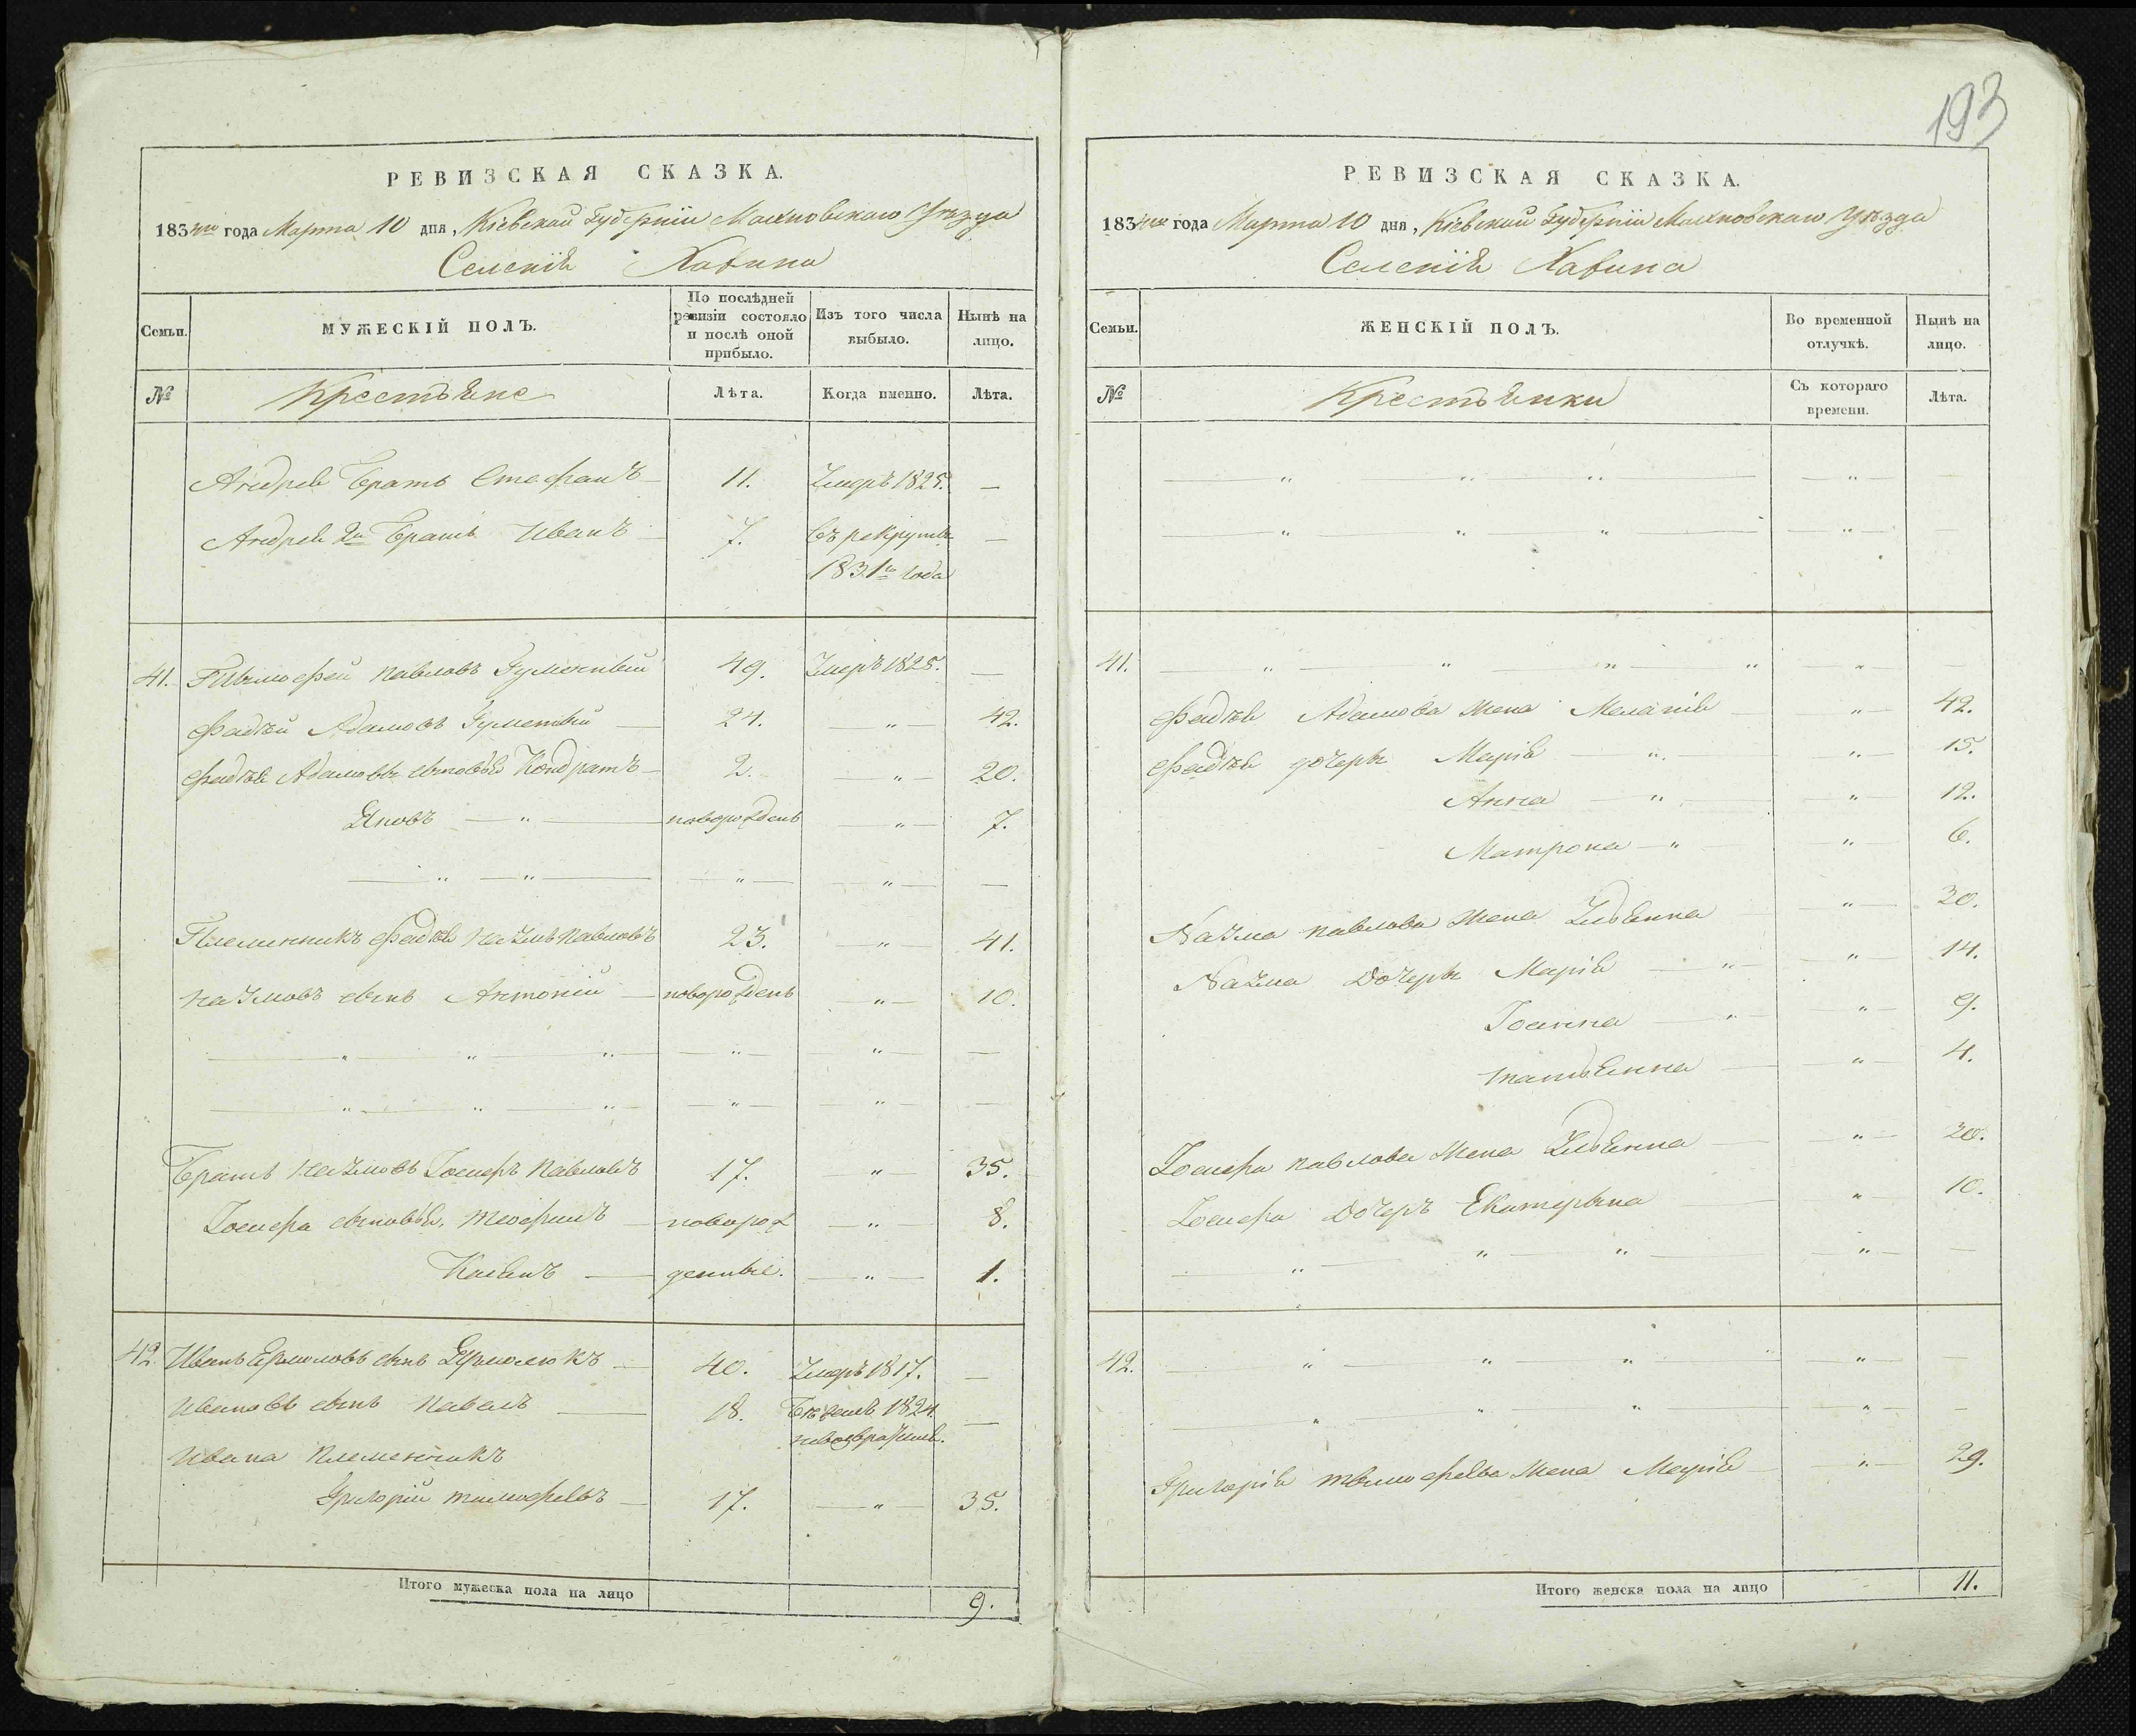 193
РЕВИЗСКАЯ СКАЗКА.
1834го года Марта 10 дня, Кіевской Губерніи Махновского Уезда
Селенія Хавина
Семьи.
МУЖЕСКІЙ ПОЛЪ.
По послѣдней ревизіи состояло и послѣ оной прибыло.
Изъ того числа выбыло.
Нынѣ на лицо.
№
Крестьяне
Лѣта.
Когда именно.
Лѣта.
Андрея Братъ Стефанъ 11. Умеръ 1825. —
Андрея 2й Братъ Иванъ 7. Въ рекруты —
1831го года
41. Тымофей Павловъ Гуменный 49. Умеръ 1825. —
Фадѣй Адамовъ 24. — " — 42.
Фадѣя Адамова сыновья Кондратъ 2. — " — 20.
Яковъ — " — новорожденъ — " — 7.
— " — " — — " — — " — —
Племянникъ Фадѣя Наумъ Павловъ 23. — " — 41.
Наумовъ сынъ Антоній новорожденъ — " — 10.
— " — " — " — — " — — " — —
— " — " — " — — " — — " — —
Братъ Наумовъ Іосифъ Павловъ 17. — " — 35.
Іосифа сыновья. Теофилъ новорож — " — 8.
денные. — " — 1.
42. Иванъ Ермоловъ сынъ Ермолюкъ 40. Умеръ 1817. —
Ивановъ сынъ Павелъ 18. Бежалъ 1824. —
Ивана Племенникъ
Григорій Тимофеевъ 17. — " — 35.
Итого мужеска пола на лицо 9.
РЕВИЗСКАЯ СКАЗКА.
1834го года Марта 10 дня, Кіевской Губерніи Махновского Уезда
Селенія Хавина
Семьи.
ЖЕНСКІЙ ПОЛЪ.
Во временной отлучкѣ.
Нынѣ на лицо.
№
Крестьянки
Съ котораго времени.
Лѣта.
— " — " — " — — " — —
— " — " — " — — " — —
41. — " — " — " — " — " — —
Фадѣя Адамова жена Меланія — " — 42.
Фадѣя дочеры Марія — " — — " — 15.
Анна — " — — " — 12.
Матрона — " — — " — 6.
Наума Павлова жена Ульянна — " — 30.
Наума Дочеры Марія — " — — " — 14.
Іоанна — " — — " — 9.
Татьянна — " — 4.
Іосифа Павлова жена Ульянна — " — 30.
Іосифа Дочеръ Екатерына — " — 10.
— " — " — " — — " — —
42. — " — " — " — " — " — —
— " — " — " — — " — —
Григорія Тымофеева жена Марія — " — 29.
Итого женска пола на лицо 11.